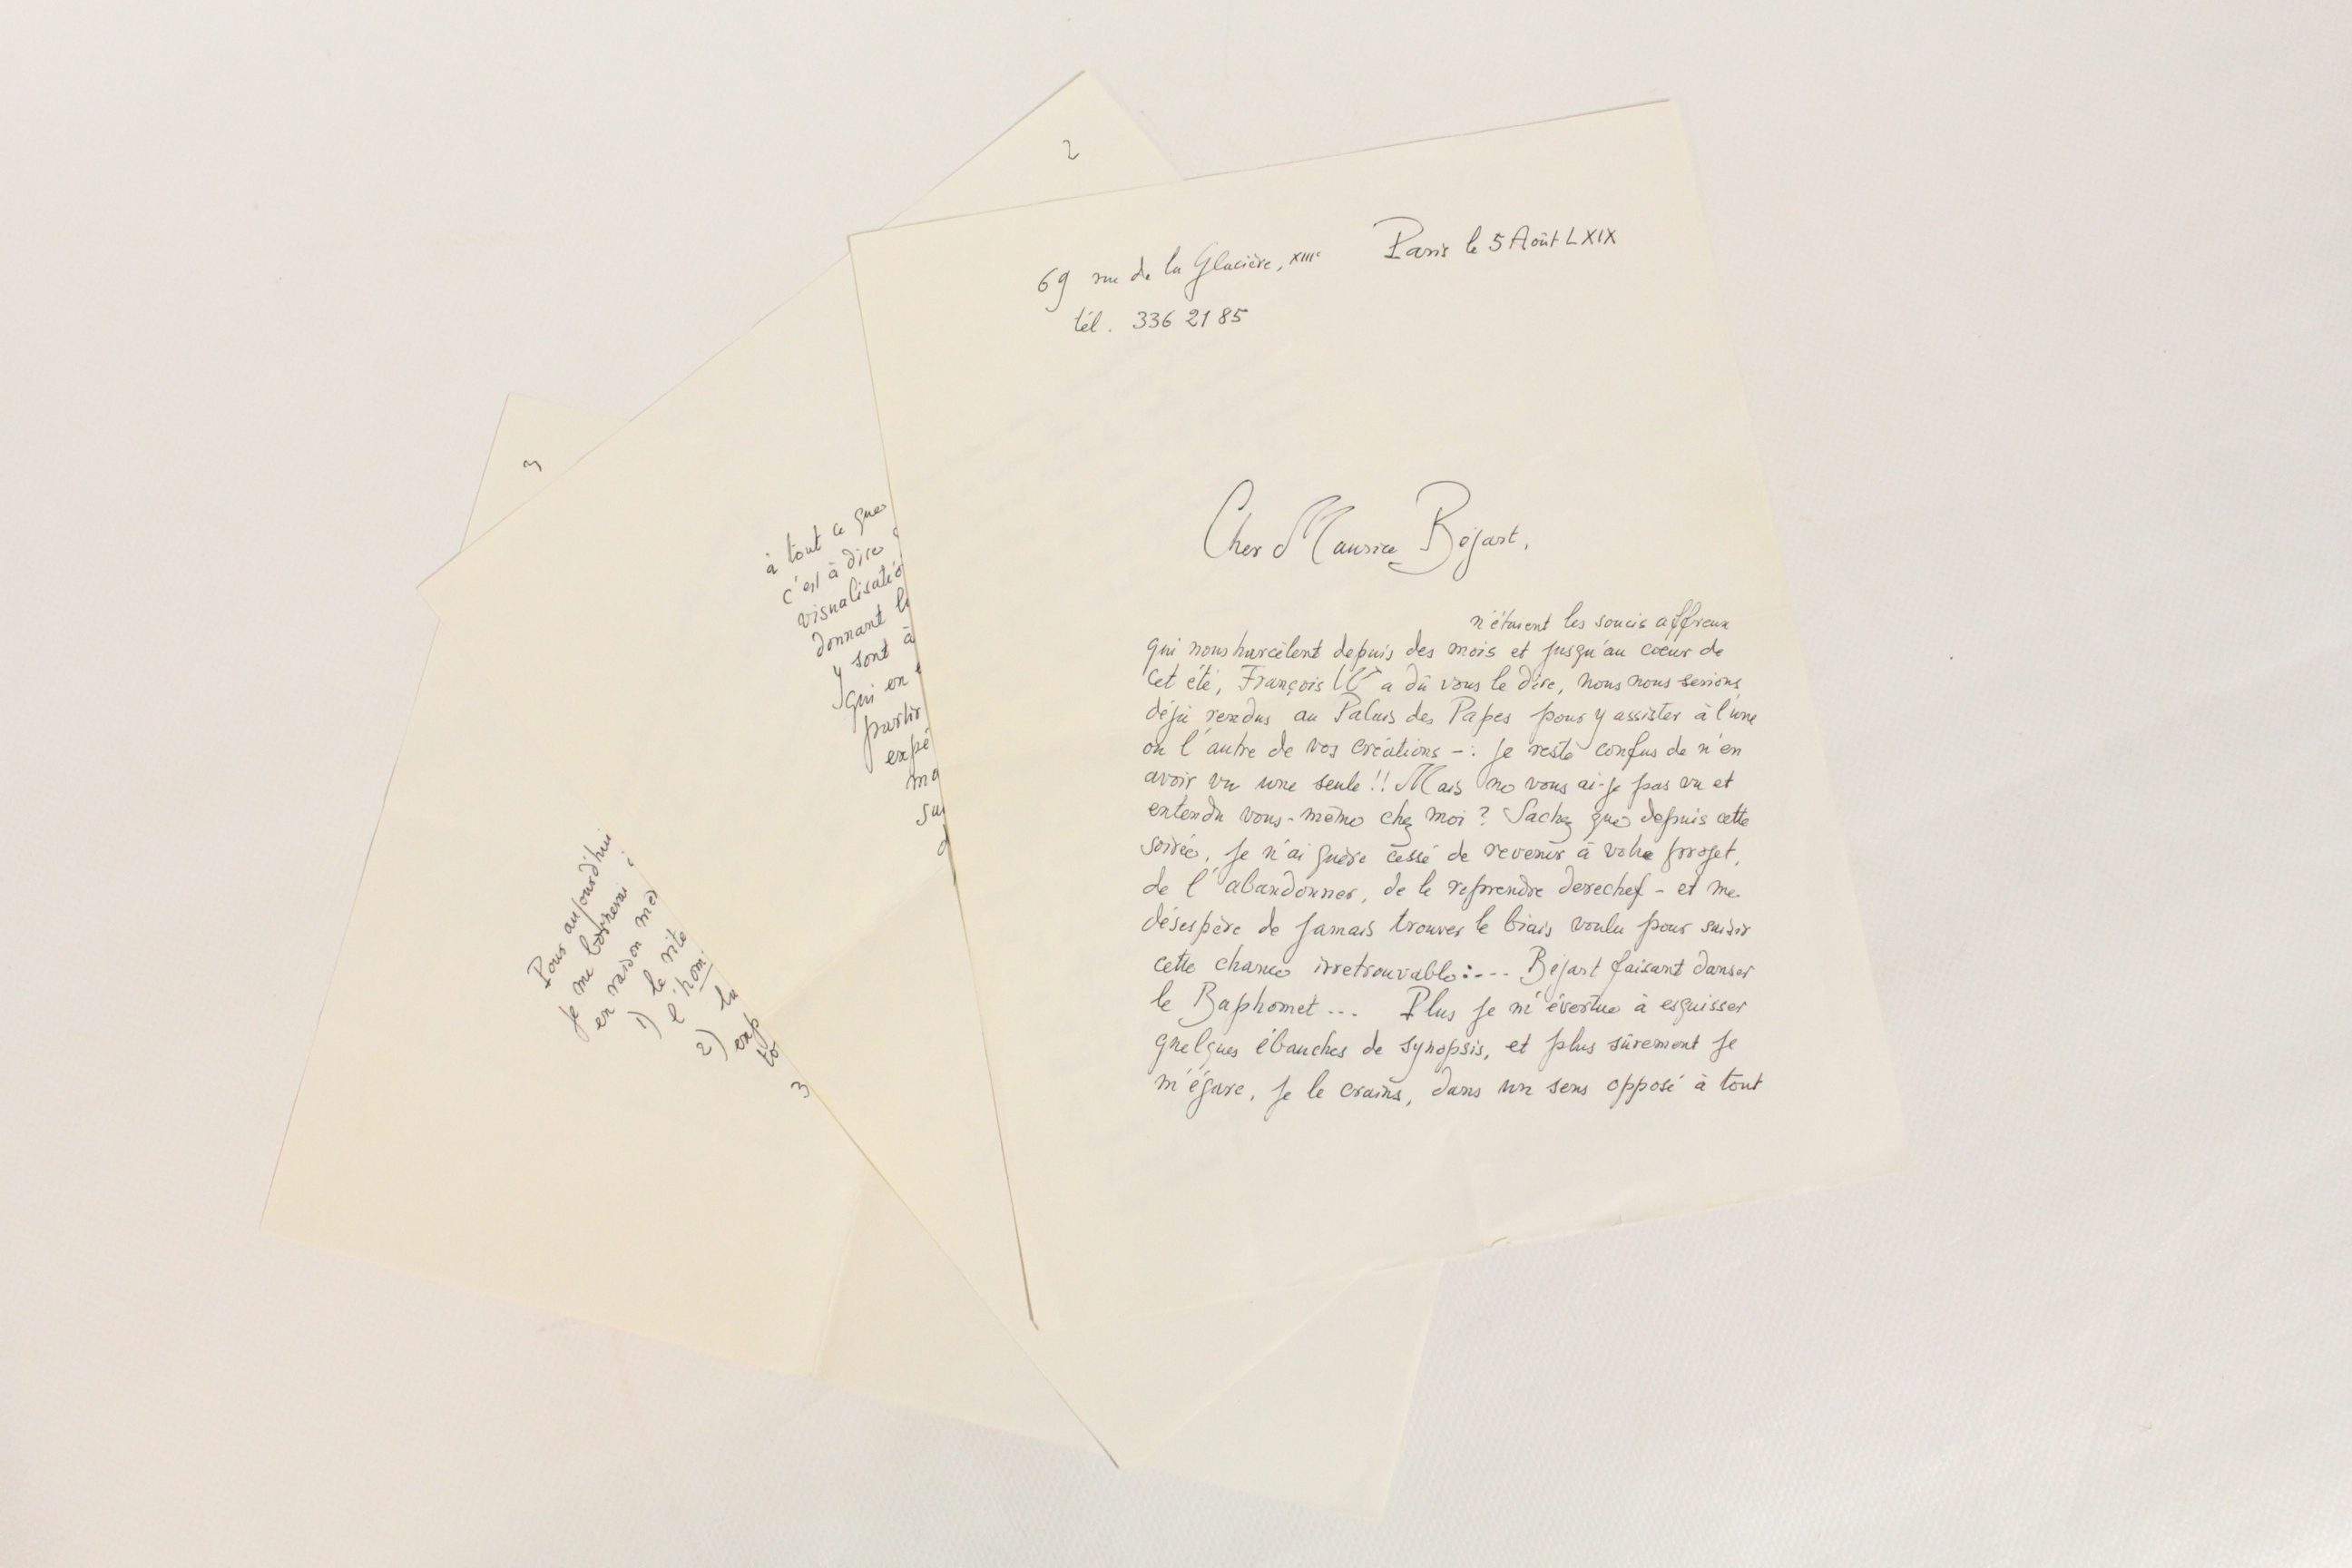 69 rue de la Glacière, XIIIe
Paris le 5 Août LXIX
tél. 336 21 85
Cher Maurice Béjart,
n'étaient les soucis affreux
qui nous harcèlent depuis des mois et jusqu'au cœur de
cet été, François W a dû vous le dire, nous nous serions
déjà rendus au Palais des Papes pour y assister à l'une
ou l'autre de vos créations -: je reste confus de n'en
avoir vu une seule!! Mais ne vous ai-je pas vu et
entendu vous-même chez moi? Sachez que depuis cette
soirée, je n'ai guère cessé de revenir à votre projet,
de l'abandonner, de le reprendre derechef - et me
désespère de jamais trouver le biais voulu pour saisir
cette chance irretrouvable:--- Béjart faisant danser
le Baphomet... Plus je m'évertue à esquisser
quelques ébauches de synopsis, et plus sûrement je
m'égare, je le crains, dans un sens opposé à tout
2
à tout ce que
c'est à dire
visualisatio
donnant l
y sont à
qui en
partir
expé
ma
su
d
3
Pour aujourd'hui
je me bornerai
en raison
1) le rite
l'hom
2) la
exp
to
3